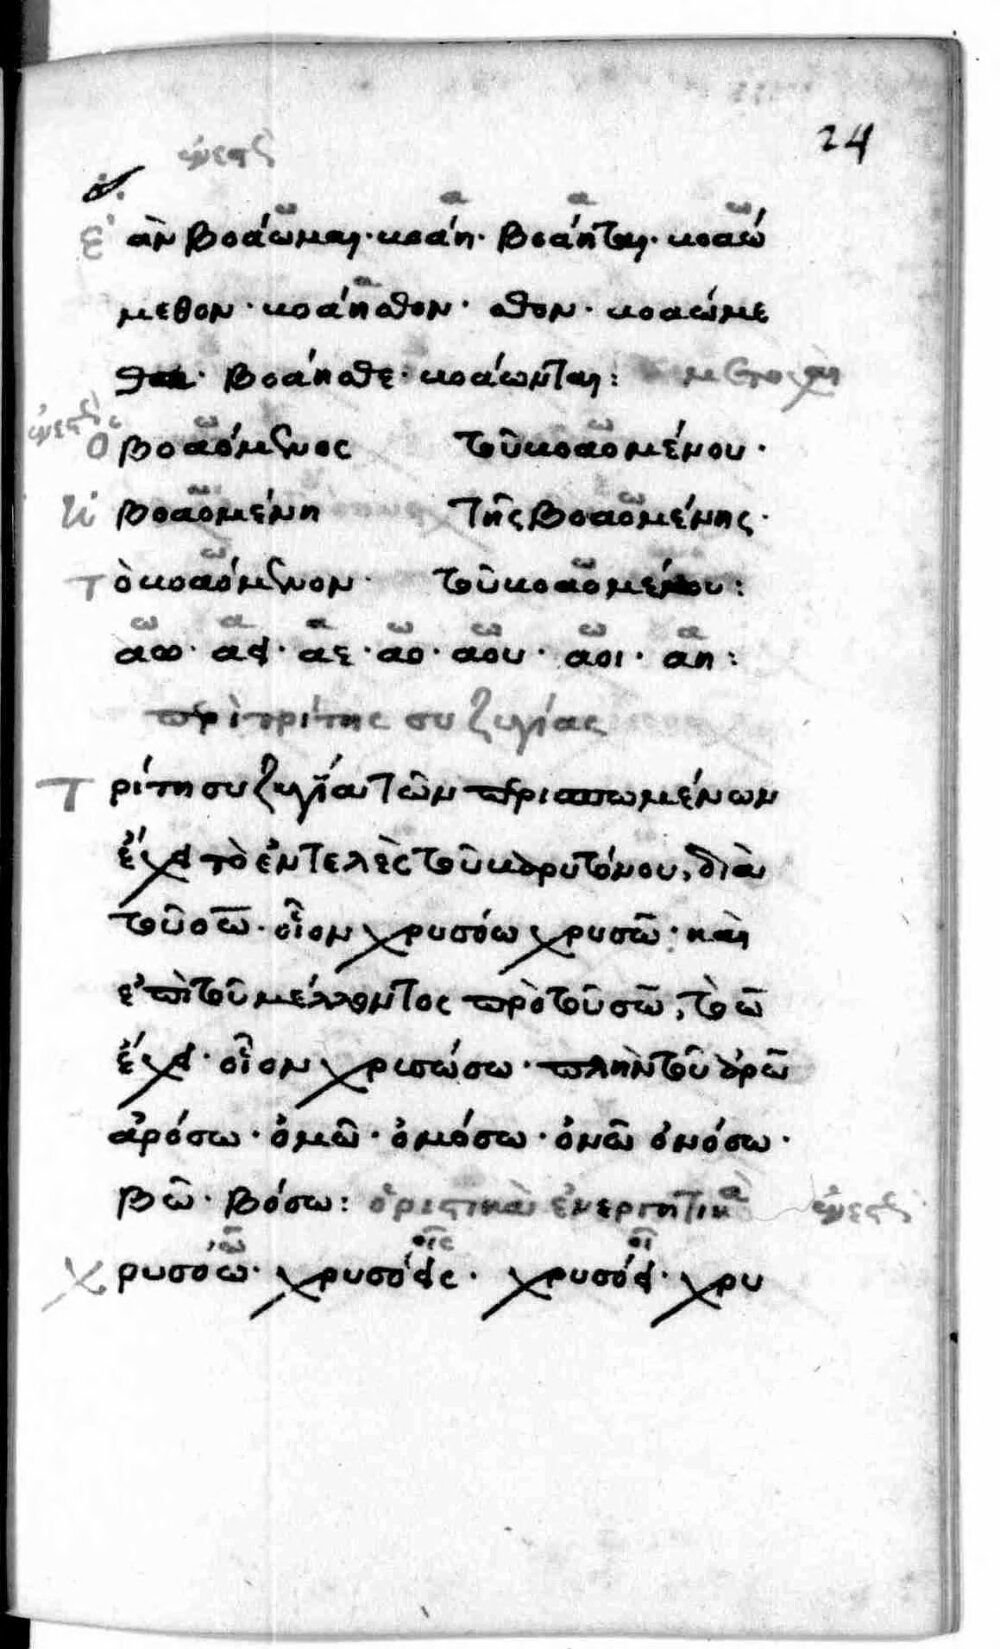 24
ἐὰν βοάωμαι · κοάη · βοάηται · κοαώ
μεθον · κοάησθον · σθον · κοαώμε
θα · βοάησθε · κοάωνται : μετοχαὶ
ὁ βοαόμενος τοῦ κοαομένου ·
ἡ βοαομένη τῆς βοαομένης ·
τὸ κοαόμενον · τοῦ κοαομένου :
ω α α ω ω ω α
αω · αει · αε · αο · αου · αοι · αη :
περὶ τρίτης συζυγίας
Τρίτη συζυγία τῶν περισπωμένων
ἔχει τὸ ἐντελὲς τοῦ βαρυτόνου, διὰ
τοῦ οω · οἷον χρυσόω χρυσῶ · καὶ
ἐπὶ τοῦ μέλλοντος πρὸ τοῦ σω, τὸ ω
ἔχει · οἷον χρισώσω · πλὴν τοῦ ἀρῶ
ἀρόσω · ὀμῶ · ὀμόσω · ὀνῶ ὀνόσω ·
βῶ · βόσω : ὁριστικὰ ἐνεργητικὰ
ῶ οῖς οῖ
χρυσόω · χρυσόεις · χρυσόει · χρυ